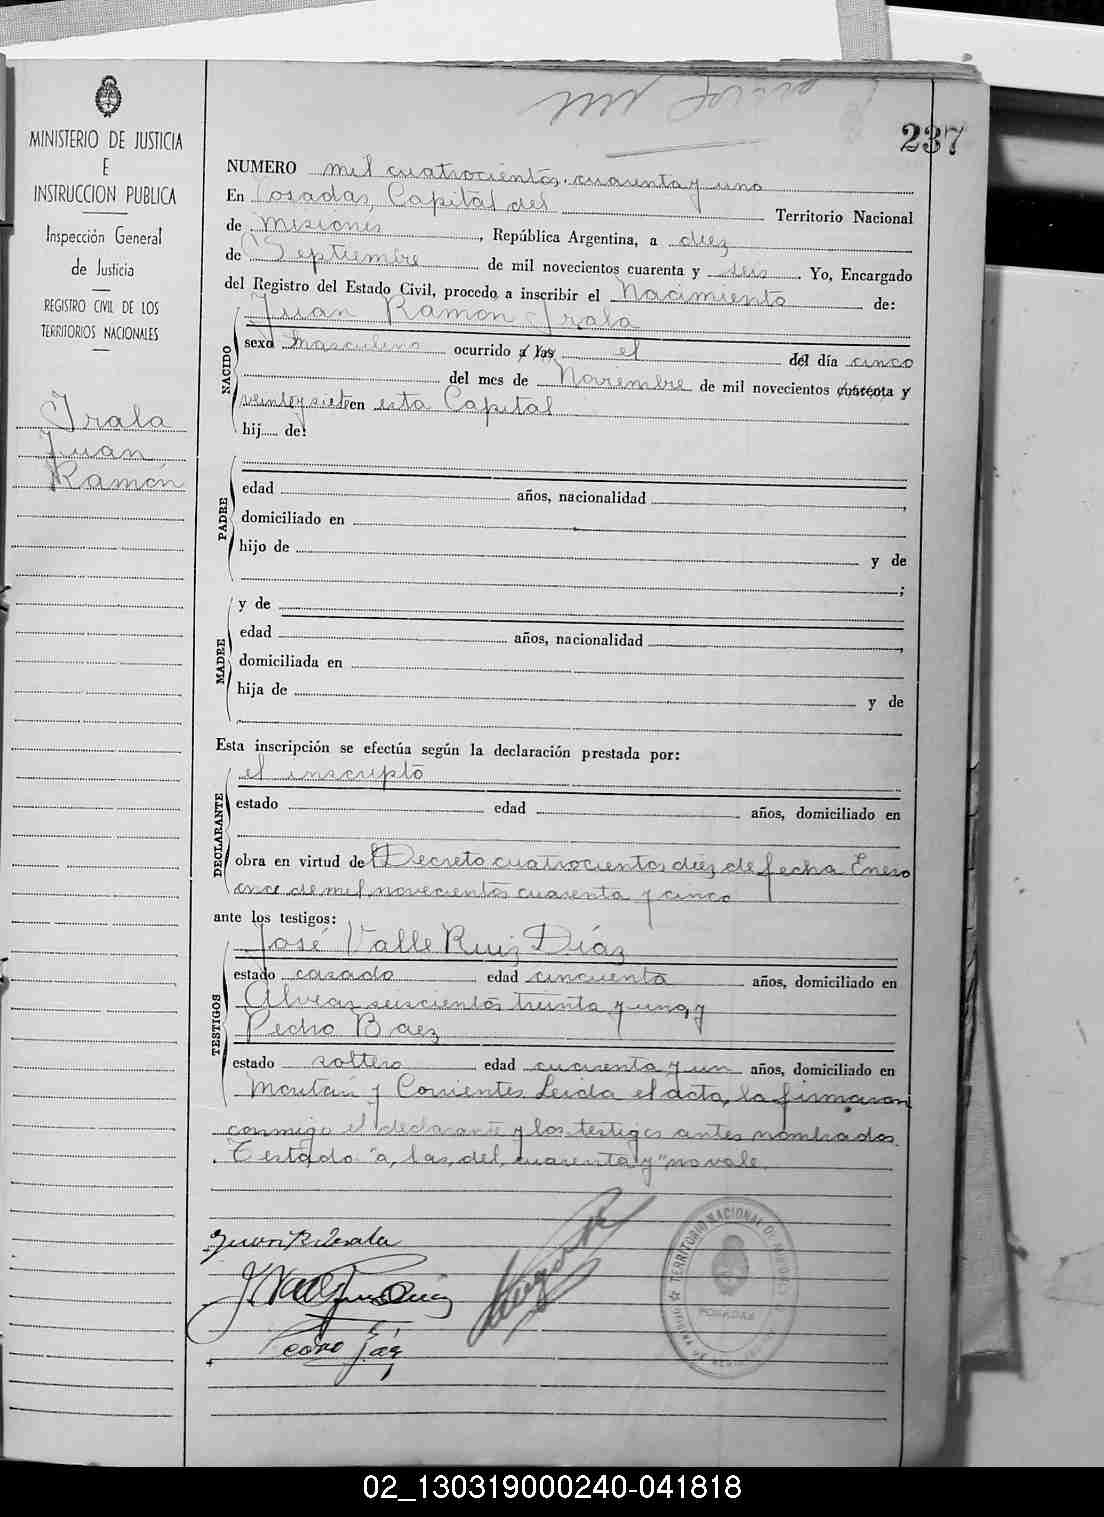 237
MINISTERIO DE JUSTICIA
E
INSTRUCCION PUBLICA
Inspección General
de Justicia
REGISTRO CIVIL DE LOS
TERRITORIOS NACIONALES
Irala
Juan
Ramón
NUMERO mil cuatrocientos cuarenta y uno
En Posadas, Capital del Territorio Nacional
de Misiones, República Argentina, a diez
de Septiembre de mil novecientos cuarenta y seis. Yo, Encargado
del Registro del Estado Civil, procedo a inscribir el Nacimiento de:
Juan Ramon Irala
NACIDO
sexo masculino ocurrido a las el del día cinco
del mes de Noviembre de mil novecientos cuarenta y
veinte y siete en esta Capital
hij de:
PADRE
edad años, nacionalidad ,
domiciliado en
hijo de y de
;
MADRE
y de
edad años, nacionalidad ,
domiciliada en
hija de y de
Esta inscripción se efectúa según la declaración prestada por:
DECLARANTE
el inscripto
estado edad años, domiciliado en
obra en virtud del Decreto cuatrocientos diez de fecha Enero
once de mil novecientos cuarenta y cinco
ante los testigos:
TESTIGOS
José Valle Ruiz Díaz
estado casado edad cincuenta años, domiciliado en
Alvear seiscientos treinta y uno, y
Pedro Baez
estado soltero edad cuarenta y un años, domiciliado en
y Corrientes. Leida el acta, la firmaron
conmigo el declarante y los testigos antes nombrados.
Testado "a, las, del, cuarenta y" no vale.
Juan R. Irala
Pedro
TERRITORIO NACIONAL DE MISIONES
POSADAS
02_130319000240-041818